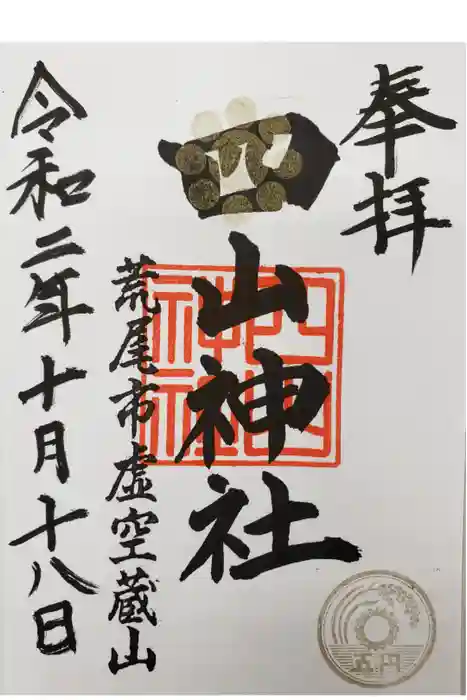 奉拝
四山神社
四山神社
荒尾市虚空蔵山
令和二年十月十八日
五円